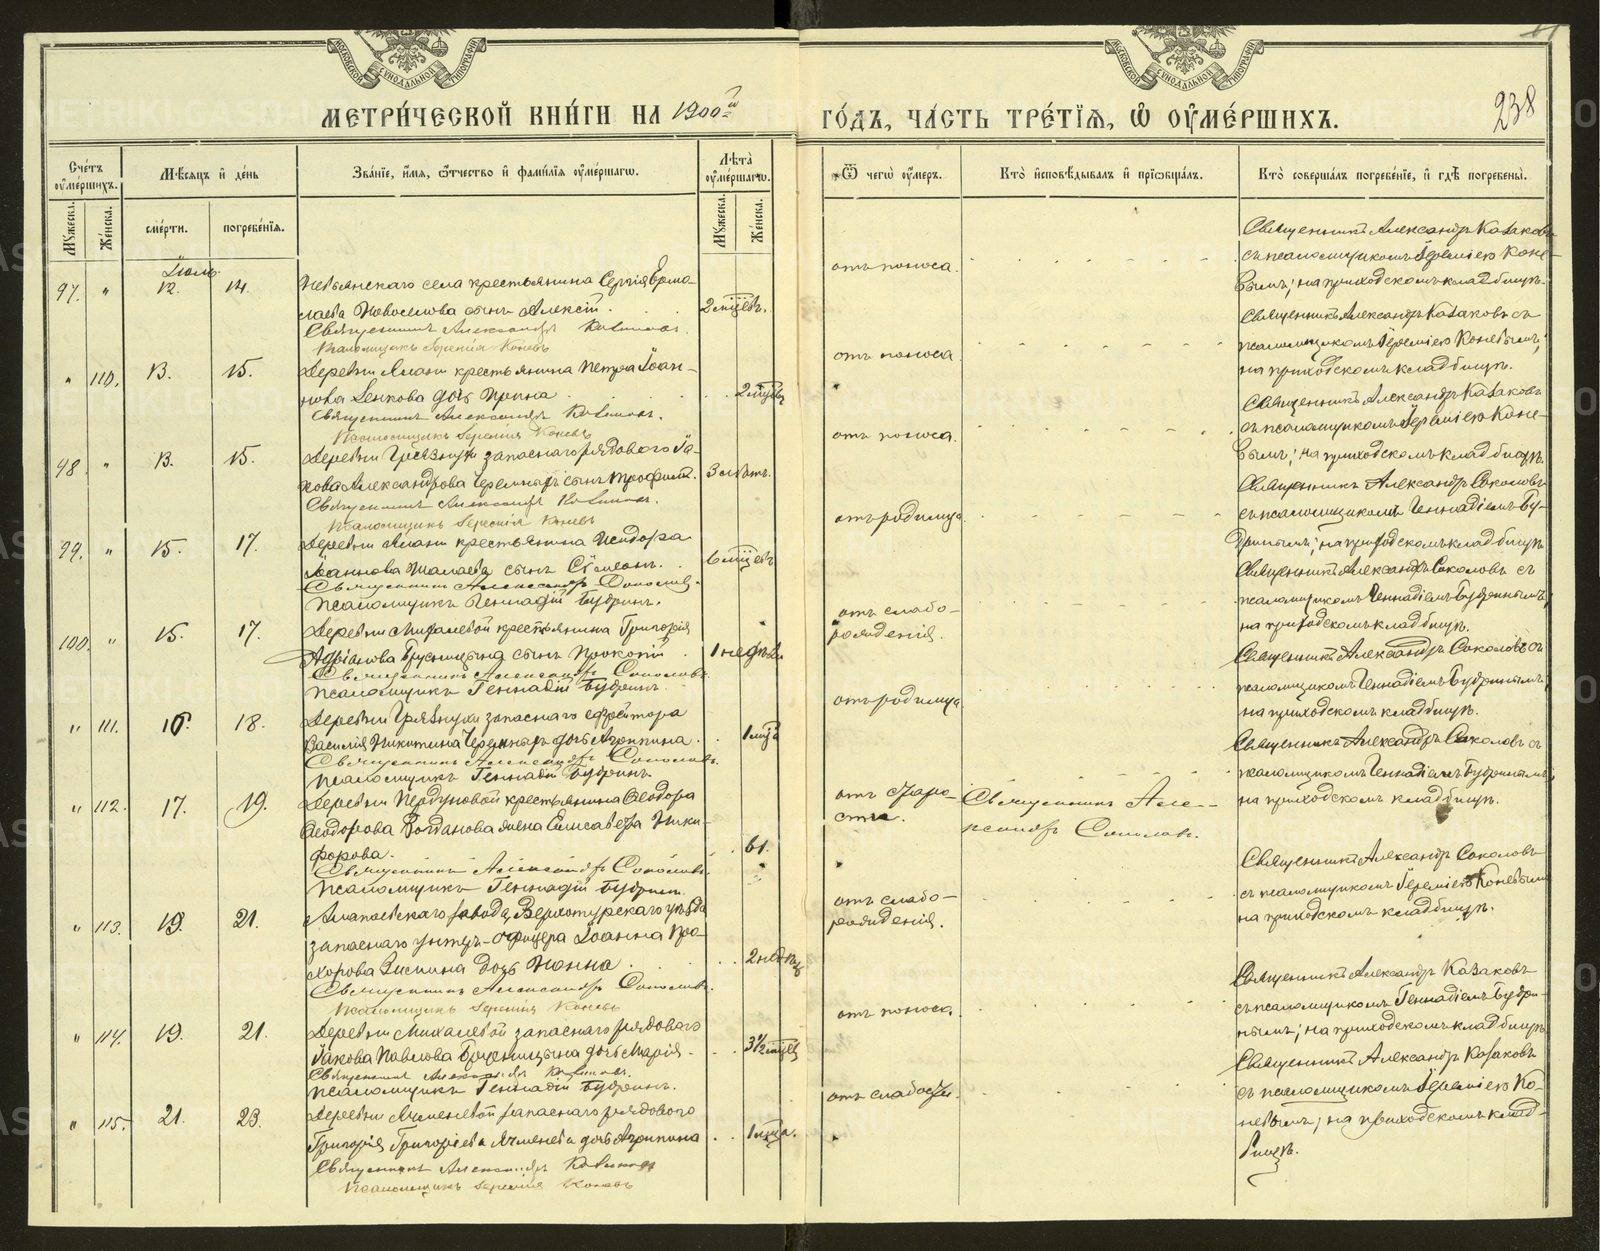 МОСКОВСКОЙ СѴНОДАЛЬНОЙ ТИПОГРАФІИ
МОСКОВСКОЙ СѴНОДАЛЬНОЙ ТИПОГРАФІИ
МЕТРИ́ЧЕСКОЙ КНИ́ГИ НА 1900й
ГО́ДЪ, ЧА́СТЬ ТРЕ́ТІѦ, Ѡ҆ ОУ҆МЕ́РШИХЪ.
238
Сче́тъ оу҆ме́ршихъ.
Мѣ́сяцъ и҆ де́нь
Зва́ніе, и҆́мя, ѻ҆́тчество и҆ фами́лія оу҆ме́ршагѡ.
Лѣ́та оу҆ме́ршагѡ.
Ѿ чегѡ̀ оу҆́меръ.
Кто̀ и҆сповѣ́дывалъ и҆ прїѡбща́лъ.
Кто̀ соверша́лъ погребе́ніе, и҆ гдѣ̀ погребены̀.
Му́жеска.
Же́нска.
сме́рти.
погребе́нія.
Му́жеска.
Же́нска.
Іюль
97. " 12. 14.
Невьянскаго села крестьянина Сергія Ермо-
лаева Новоселова сынъ Алексій.
2 мцевъ.
Священникъ Александръ Казаковъ.
Псаломщикъ Іеремія Коневъ
отъ поноса.
Священникъ Александръ Казаковъ
съ псаломщикомъ Іереміею Коне-
вымъ; на приходскомъ кладбищѣ.
" 110. 13. 15.
Деревни Ялани крестьянина Петра Іоан-
нова Зенкова дочь Ирина
2 мцевъ
Священникъ Александръ Казаковъ.
Псаломщикъ Іеремія Коневъ
отъ поноса
Священникъ Александръ Казаковъ съ
псаломщикомъ Іереміею Коневымъ;
на приходскомъ кладбищѣ.
98. " 13. 15.
Деревни Грязнухи запаснаго рядового Іа-
кова Александрова Черемныхъ сынъ Трофимъ.
3 лѣтъ.
Священникъ Александръ Казаковъ.
Псаломщикъ Іеремія Коневъ
отъ поноса.
Священникъ Александръ Казаковъ
съ псаломщикомъ Іереміею Коне-
вымъ; на приходскомъ кладбищѣ.
99. " 15. 17.
Деревни Ялани крестьянина Исидора
Іоаннова сынъ Сѷмеонъ.
6 мцевъ
Священникъ Александръ Соколовъ.
Псаломщикъ Геннадій Бубринъ.
отъ родимца
Священникъ Александръ Соколовъ
съ псаломщикомъ Геннадіемъ Бу-
бринымъ; на приходскомъ кладбищѣ
100. " 15. 17.
Деревни Михалевой крестьянина Григорія
Адріанова Брусницына сынъ Прокопій.
1 недѣли
Священникъ Александръ Соколовъ.
Псаломщикъ Геннадій Бубринъ.
отъ слабо-
рожденія.
Священникъ Александръ Соколовъ съ
псаломщикомъ Геннадіемъ Бубринымъ;
на приходскомъ кладбищѣ.
" 111. 16. 18.
Деревни Грязнухи запаснаго ефрейтора
Василія Никитина Черемныхъ дочь Агрипина.
1 мца
Священникъ Александръ Соколовъ.
Псаломщикъ Геннадій Бубринъ.
отъ родимца
Священникъ Александръ Соколовъ съ
псаломщикомъ Геннадіемъ Бубринымъ;
на приходскомъ кладбищѣ.
" 112. 17. 19.
Деревни Пердуновой крестьянина Ѳеодора
Ѳеодорова Богданова жена Елисавета Ники-
форова.
61.
Священникъ Александръ Соколовъ.
Псаломщикъ Геннадій Бубринъ.
отъ старо-
сти.
Священникъ Але-
ксандръ Соколовъ.
Священникъ Александръ Соколовъ съ
псаломщикомъ Геннадіемъ Бубринымъ;
на приходскомъ кладбищѣ.
" 113. 19. 21.
Алапаевскаго завода, Верхотурскаго уѣзда
запаснаго унтеръ-офицера Іоанна Про-
хорова дочь Нонна.
2 недѣль
Священникъ Александръ Соколовъ.
Псаломщикъ Іеремія Коневъ
отъ слабо-
рожденія.
Священникъ Александръ Соколовъ
съ псаломщикомъ Іереміею Коневымъ
на приходскомъ кладбищѣ.
" 114. 19. 21.
Деревни Михалевой запаснаго рядового
Іакова Павлова Брусницына дочь Марія.
3½ мцевъ
Священникъ Александръ Казаковъ.
Псаломщикъ Геннадій Бубринъ.
отъ поноса.
Священникъ Александръ Казаковъ
съ псаломщикомъ Геннадіемъ Бубри-
нымъ; на приходскомъ кладбищѣ
" 115. 21. 23.
Деревни Ячменевой запаснаго рядового
Григорія Григоріева Ячменева дочь Агрипина
1 мца.
Священникъ Александръ Казаковъ
Псаломщикъ Іеремія Коневъ
отъ слабости.
Священникъ Александръ Казаковъ
съ псаломщикомъ Іереміею Ко-
невымъ; на приходскомъ клад-
бищѣ.